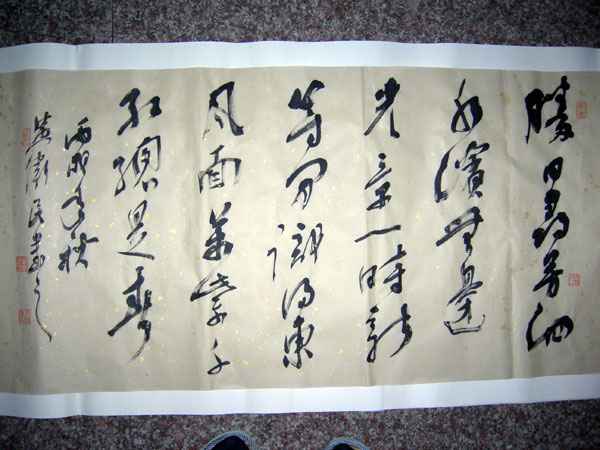 勝日尋芳泗
水濱無邊
光景一時新
等閒識得東
風面萬紫千
紅總是春
丙戌年秋
衛民書